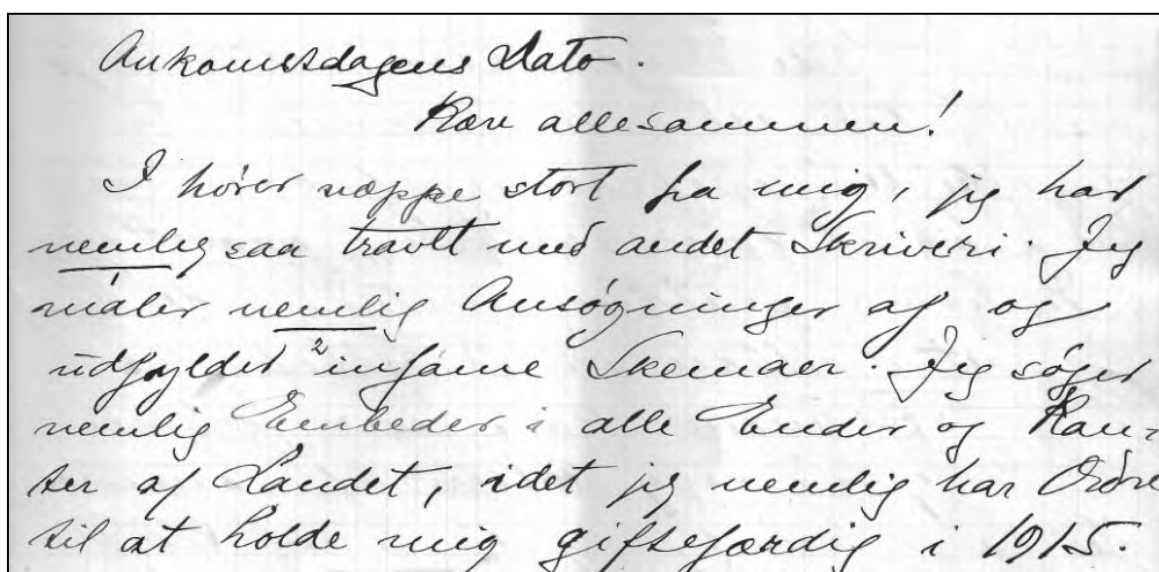 Ankomstdagens Dato.
Kære allesammen!
I hører næppe stort fra mig, jeg har
nemlig saa travlt med andet Skriveri. Jeg
maler nemlig Ansøgninger af og
udfylder 2 infame Skemaer. Jeg søger
nemlig Embeder i alle Ender og Kan-
ter af Landet, idet jeg nemlig har Ordre
til at holde mig giftefærdig i 1915.